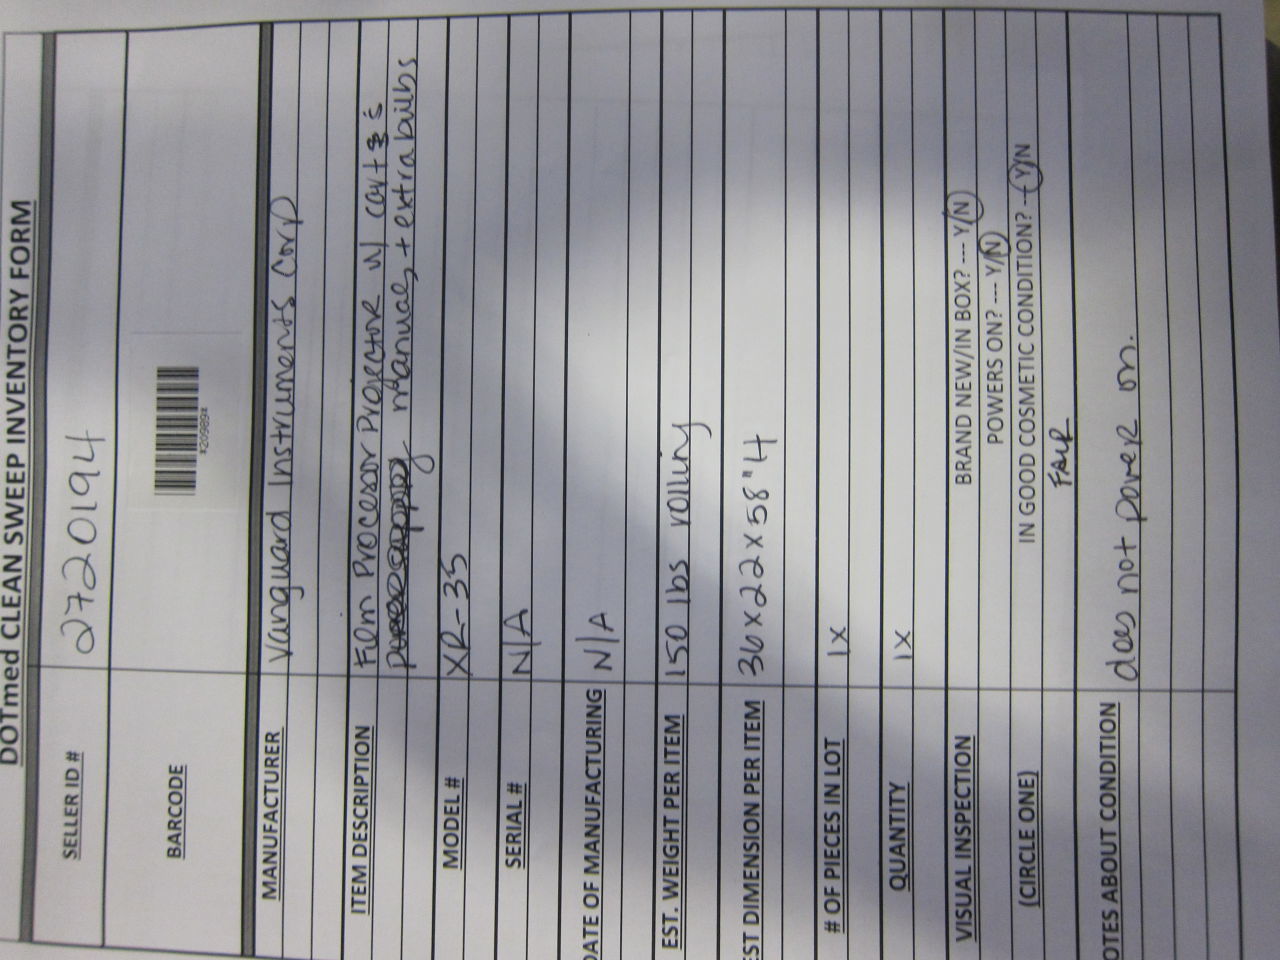 DOTmed CLEAN SWEEP INVENTORY FORM
SELLER ID # 2720194
BARCODE
MANUFACTURER Vanguard Instruments Corp
ITEM DESCRIPTION Film Processor Projector w/ cart &
manual, + extra bulbs
MODEL # XR-35
SERIAL # N/A
DATE OF MANUFACTURING N/A
EST. WEIGHT PER ITEM 150 lbs rolling
EST DIMENSION PER ITEM 36 x 22 x 58"H
# OF PIECES IN LOT 1X
QUANTITY 1X
VISUAL INSPECTION BRAND NEW/IN BOX? ---- Y/N
POWERS ON? ---- Y/N
(CIRCLE ONE) IN GOOD COSMETIC CONDITION? ---Y/N
FAIR
OTES ABOUT CONDITION does not power on.